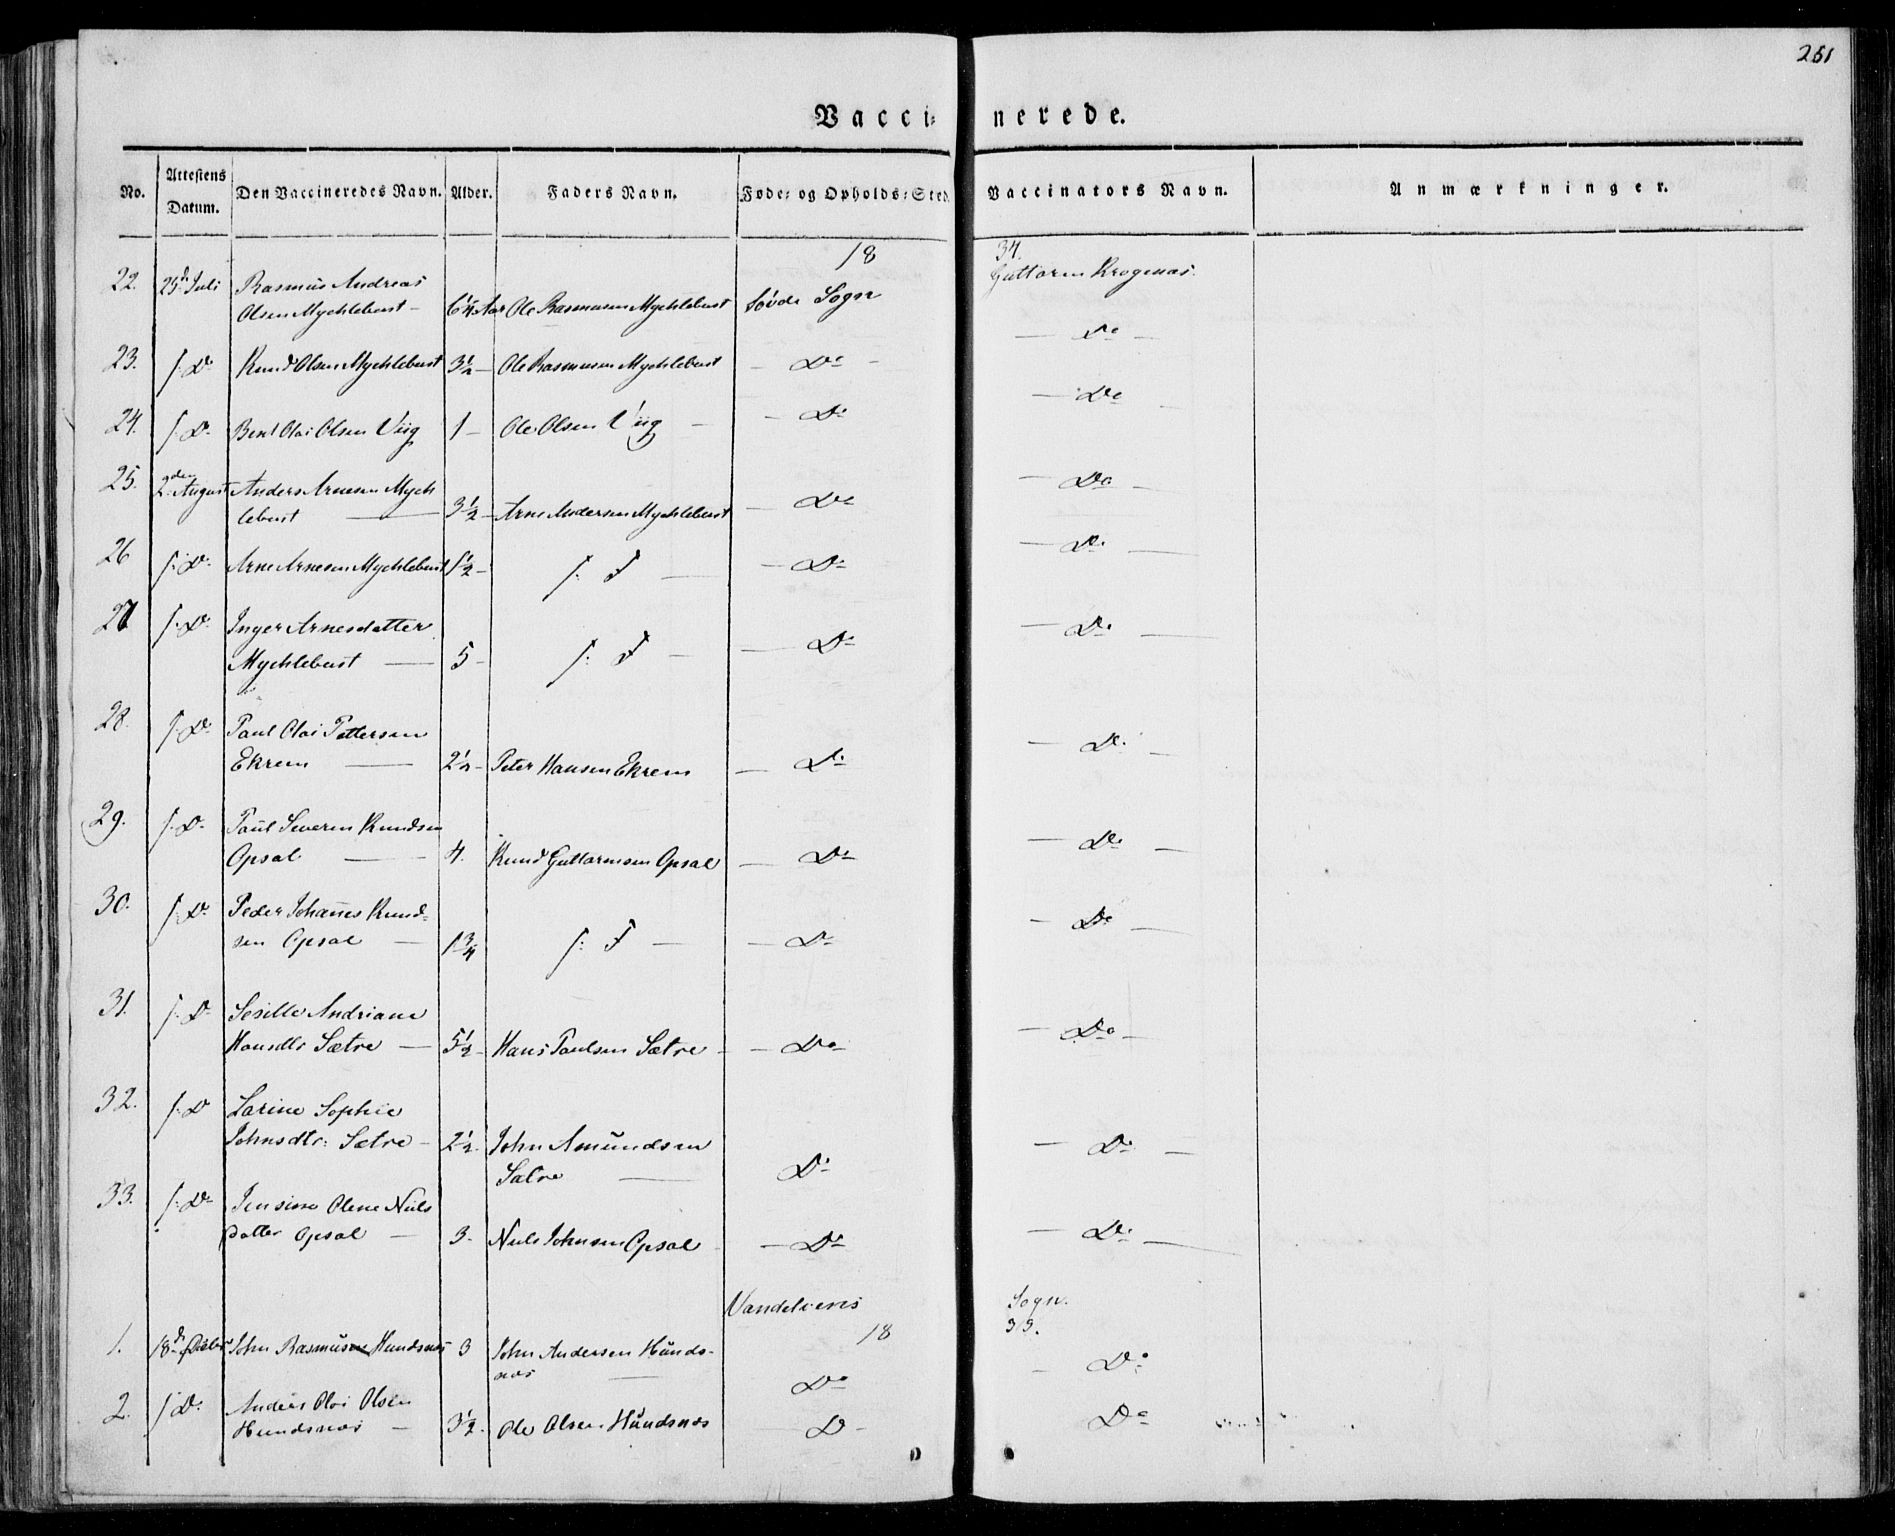 251
Vacci= nerede.
No. Attestens Datum. Den Vaccineredes Navn. Alder. Faders Navn. Føde= og Opholds=Sted. Vaccinators Navn. Anmærkninger.
18 34.
22. 25d Juli Rasmus Andreas Guttorm Krogenæs.
Olsen Mychlebust – 6¼ Aar Ole Rasmusen Mychlebust Søvde Sogn
— Do —
23. f: Do Knud Olsen Mychlebust 3½ – Ole Rasmusen Mychlebust — Do –
— Do —
24. f: Do Bent Olai Olsen Viig 1 – Ole Olsen Viig — — Do
25. 2den August Anders Arnesen Mych — Do —
lebust — 3½ – Arne Andersen Mychlebust — Do
26 f: Do Arne Arnesen Mychlebust 1½ – f: F — — Do — Do —
27 f: Do Inger Arnesdatter — Do —
Mychlebust — 5 – f: F — — Do
28. f: Do Paul Olai Pettersen — Do —
Ekrem — 2½ – Peter Hansen Ekrem — Do
29. f: Do Paul Severin Knudsen — Do —
Opsal — 4. Knud Guttormsen Opsal — Do
30. f: Do Peder Johannes Knud= — Do —
sen Opsal — 1¾ f: F — — Do
31. f: Do Sesille Andriane — Do —
Hansdtr Sætre — 5½ – Hans Paulsen Sætre – — Do
32. f: Do Larine Sophie
Johnsdtr: Sætre – 2½. John Amundsen — Do —
Sætre — Do
33. f: Do Jensine Olene Niels — Do —
Datter Opsal — 3. Niels Johnsen Opsal — Do
Vandelvens Sogn.
18 35.
1. 18de John Rasmus Hundsnæs 3 John Andersen Hunds- — Do
næs — Do
2. f Do Anders Olai Olsen Do
Hundsnæs — 3½. Ole Olsen Hundsnæs D –